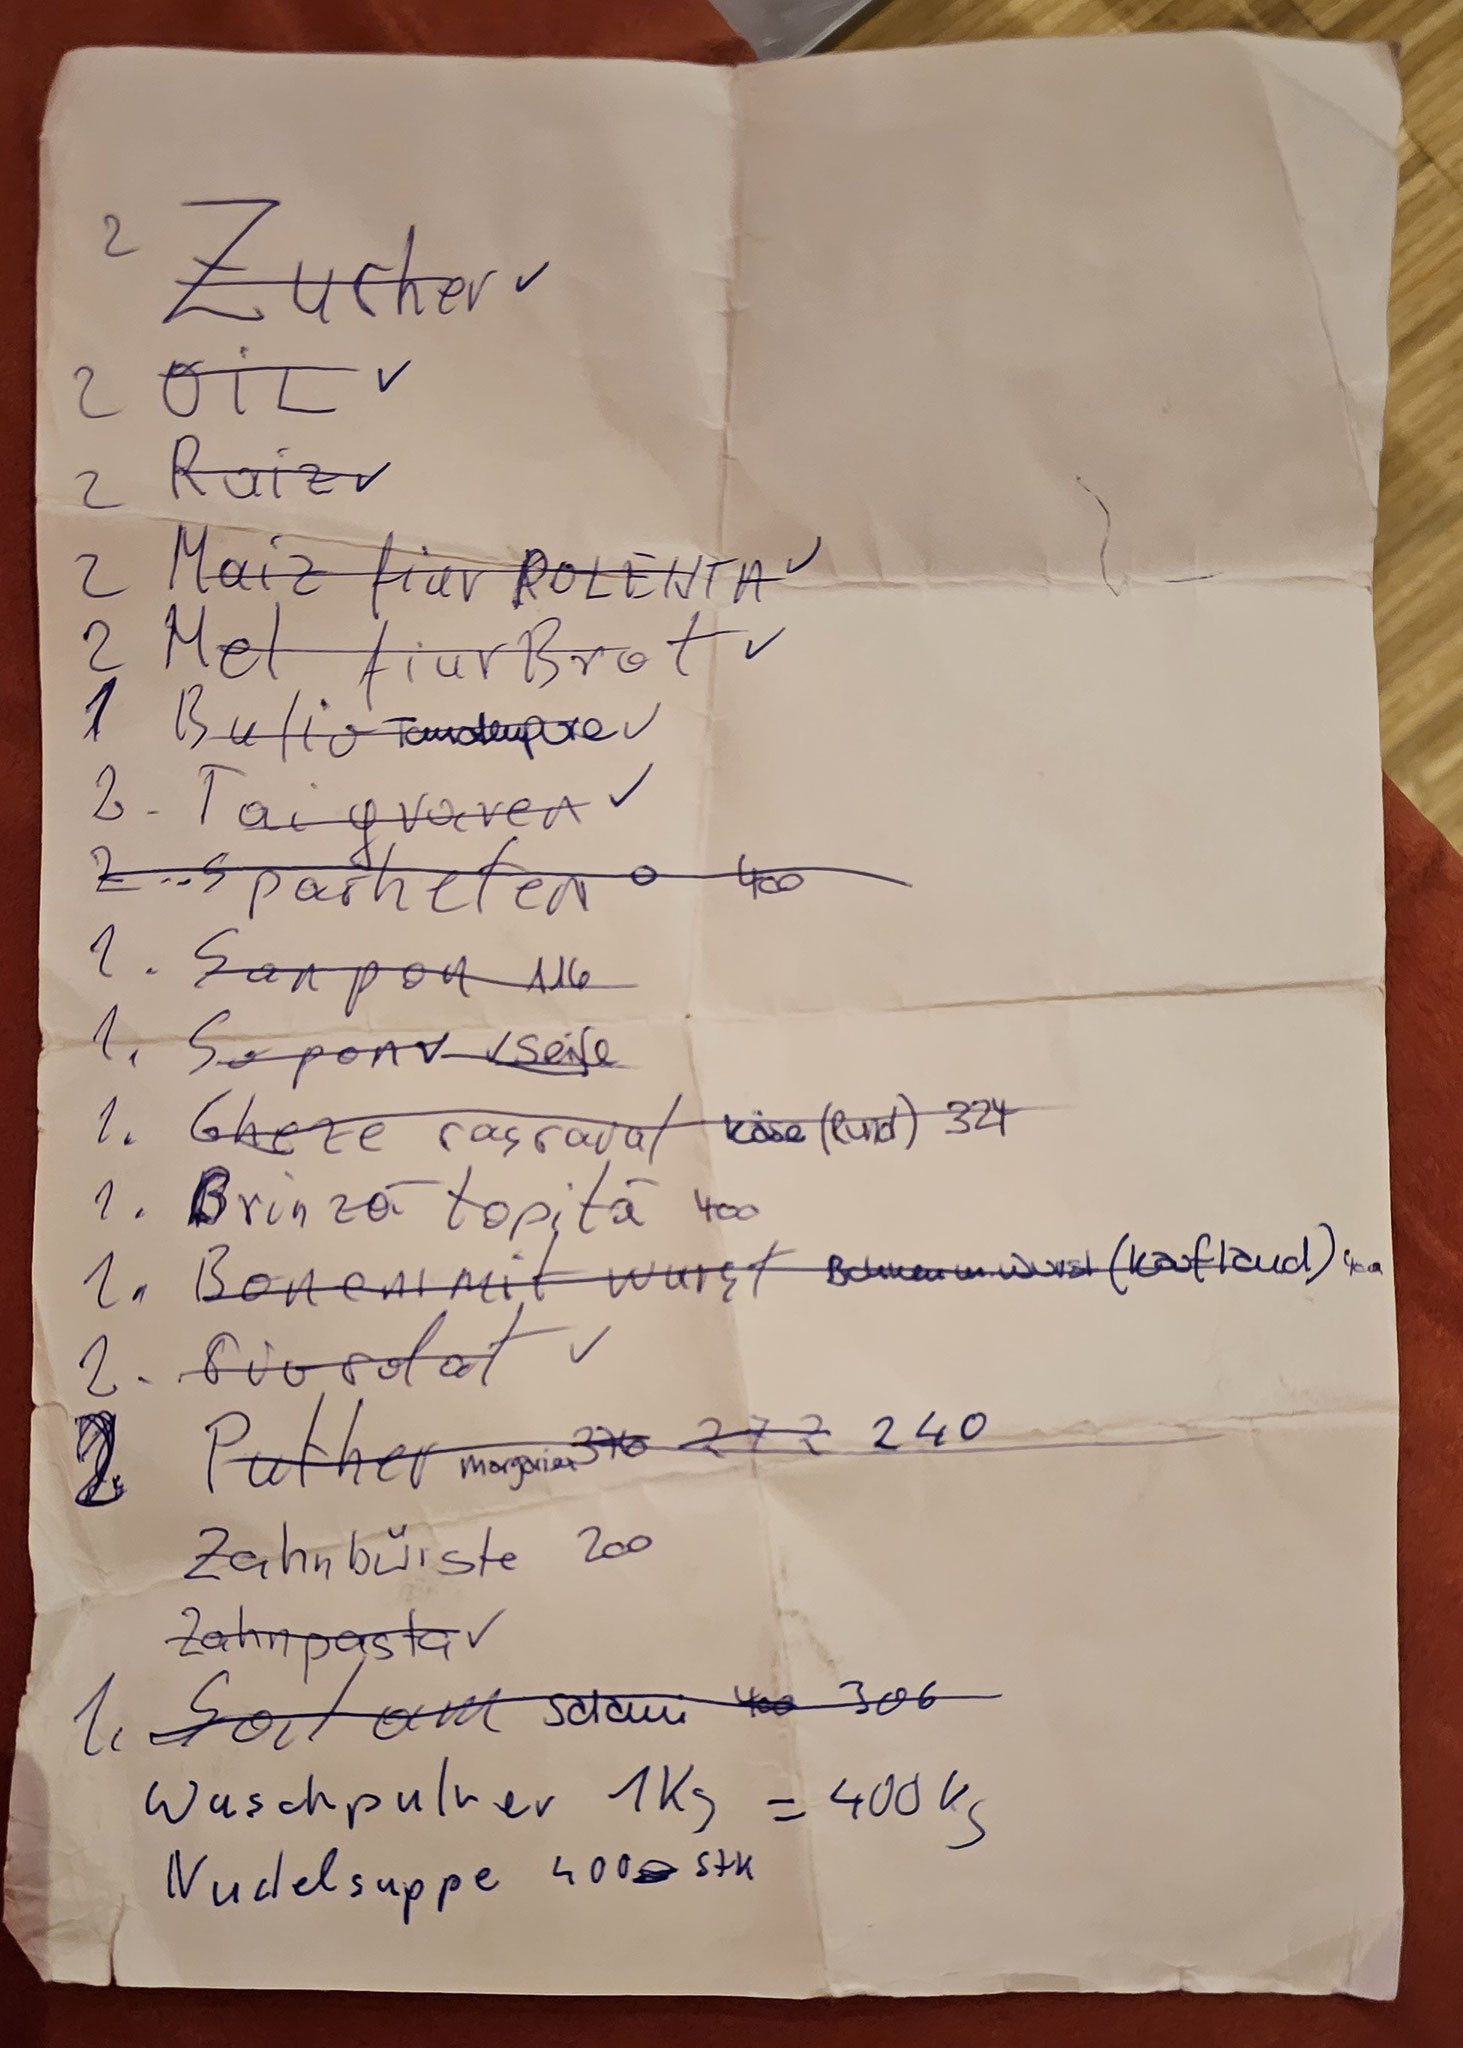 2 Zucker ✓
2 OiL ✓
2 Raiz ✓
2 Maiz fiur POLENTA ✓
2 Mel fiur Brot ✓
1 Bulio ✓
2. Taigvaren ✓
2.. Sparheten o 400
1. Sanpon 116
1. Soponv ✓ Seife
1. Gheze cascaval Käse (Rund) 324
1. Brinză topită 400
1. Bonen mit wurst Bohnen m. Wurst (Kaufland) 400
2.
2. Puther Margarine 376 272 240
Zahnbürste 200
Zahnpasta ✓
1. Sal am Salami 400 306
Waschpulver 1Kg = 400 Kg
Nudelsuppe 400 Stk